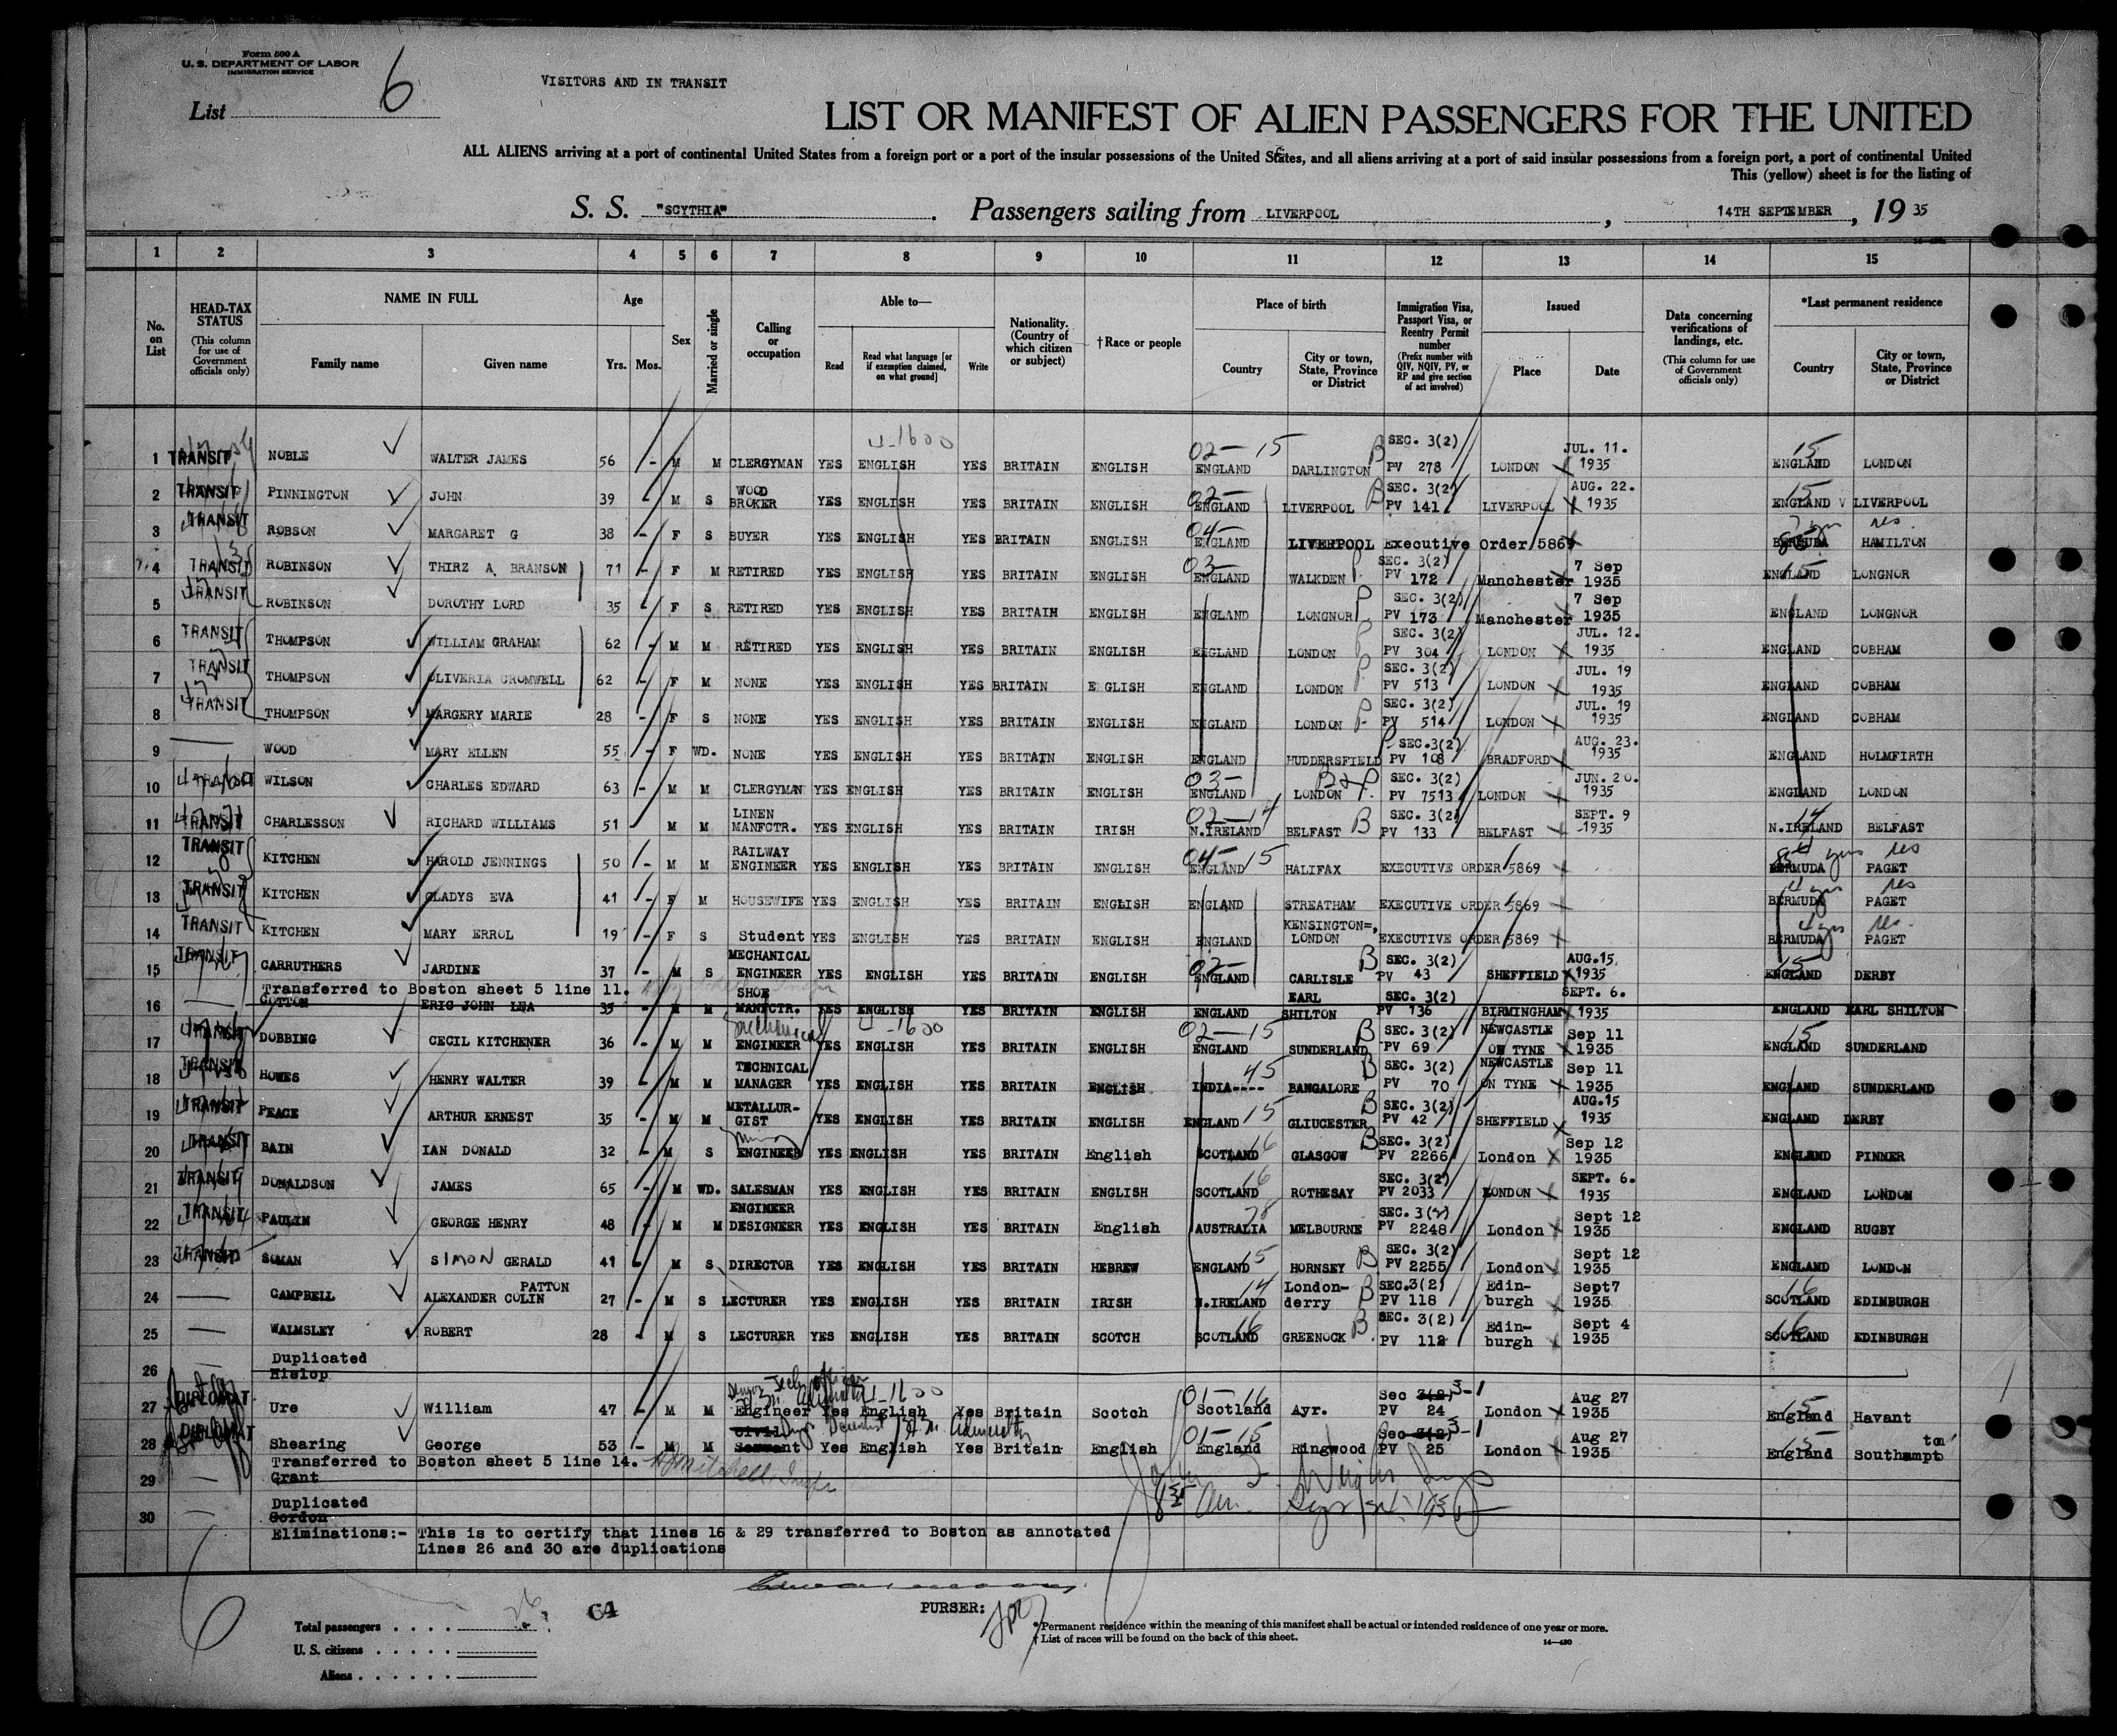 Form 500 A
U. S. DEPARTMENT OF LABOR
IMMIGRATION SERVICE
List 6
VISITORS AND IN TRANSIT
LIST OR MANIFEST OF ALIEN PASSENGERS FOR THE UNITED
ALL ALIENS arriving at a port of continental United States from a foreign port or a port of the insular possessions of the United States, and all aliens arriving at a port of said insular possessions from a foreign port, a port of continental United
This (yellow) sheet is for the listing of
S. S. "SCYTHIA". Passengers sailing from LIVERPOOL, 14TH SEPTEMBER, 19 35
1 2 3 4 5 6 7 8 9 10 11 12 13 14 15
No. on List
HEAD-TAX STATUS (This column for use of Government officials only)
NAME IN FULL Family name Given name
Age Yrs. Mos.
Sex
Married or single
Calling or occupation
Able to— Read Read what language [or if exemption claimed, on what ground] Write
Nationality. (Country of which citizen or subject)
†Race or people
Place of birth Country City or town, State, Province or District
Immigration Visa, Passport Visa, or Reentry Permit number (Prefix number with QIV, NQIV, PV, or RP and give section of act involved)
Issued Place Date
Data concerning verifications of landings, etc. (This column for use of Government officials only)
*Last permanent residence Country City or town, State, Province or District
1 TRANSIT NOBLE WALTER JAMES 56 - M M CLERGYMAN YES ENGLISH YES BRITAIN ENGLISH 02-15 ENGLAND DARLINGTON B SEC. 3(2) PV 278 LONDON JUL. 11. 1935 15 ENGLAND LONDON
2 TRANSIT PINNINGTON JOHN 39 - M S WOOD BROKER YES ENGLISH YES BRITAIN ENGLISH 02- ENGLAND LIVERPOOL B SEC. 3(2) PV 141 LIVERPOOL AUG. 22. 1935 15 ENGLAND LIVERPOOL
3 TRANSIT ROBSON MARGARET G 38 - F S BUYER YES ENGLISH YES BRITAIN ENGLISH 04- ENGLAND LIVERPOOL Executive Order 5869 BERMUDA HAMILTON
4 TRANSIT ROBINSON THIRZ A BRANSON 71 - F M RETIRED YES ENGLISH YES BRITAIN ENGLISH 03- ENGLAND WALKDEN P SEC. 3(2) PV 172 Manchester 7 Sep 1935 15 ENGLAND LONGNOR
5 TRANSIT ROBINSON DOROTHY LORD 35 - F S RETIRED YES ENGLISH YES BRITAIN ENGLISH ENGLAND LONGNOR P SEC. 3(2) PV 173 Manchester 7 Sep 1935 ENGLAND LONGNOR
6 TRANSIT THOMPSON WILLIAM GRAHAM 62 - M M RETIRED YES ENGLISH YES BRITAIN ENGLISH ENGLAND LONDON P SEC. 3(2) PV 304 LONDON JUL. 12. 1935 ENGLAND COBHAM
7 TRANSIT THOMPSON OLIVERIA CROMWELL 62 - F M NONE YES ENGLISH YES BRITAIN E GLISH ENGLAND LONDON P SEC. 3(2) PV 513 LONDON JUL. 19 1935 ENGLAND COBHAM
8 TRANSIT THOMPSON MARGERY MARIE 28 - F S NONE YES ENGLISH YES BRITAIN ENGLISH ENGLAND LONDON P SEC. 3(2) PV 514 LONDON JUL. 19 1935 ENGLAND COBHAM
9 WOOD MARY ELLEN 55 - F WD. NONE YES ENGLISH YES BRITAIN ENGLISH ENGLAND HUDDERSFIELD P SEC.3(2) PV 108 BRADFORD AUG. 23. 1935 ENGLAND HOLMFIRTH
10 TRANSIT WILSON CHARLES EDWARD 63 - M M CLERGYMAN YES ENGLISH YES BRITAIN ENGLISH 03- ENGLAND LONDON B & P SEC. 3(2) PV 7513 LONDON JUN. 20. 1935 ENGLAND LONDON
11 TRANSIT CHARLESSON RICHARD WILLIAMS 51 M M LINEN MANFCTR. YES ENGLISH YES BRITAIN IRISH 02-14 N.IRELAND BELFAST B SEC. 3(2) PV 133 BELFAST SEPT. 9 1935 14 N.IRELAND BELFAST
12 TRANSIT KITCHEN HAROLD JENNINGS 50 - M M RAILWAY ENGINEER YES ENGLISH YES BRITAIN ENGLISH 04-15 ENGLAND HALIFAX EXECUTIVE ORDER 5869 yrs res BERMUDA PAGET
13 TRANSIT KITCHEN GLADYS EVA 41 - F M HOUSEWIFE YES ENGLISH YES BRITAIN ENGLISH ENGLAND STREATHAM EXECUTIVE ORDER 5869 4 yrs res BERMUDA PAGET
14 TRANSIT KITCHEN MARY ERROL 19 - F S Student YES ENGLISH YES BRITAIN ENGLISH ENGLAND KENSINGTON=, LONDON EXECUTIVE ORDER 5869 4 yrs res. BERMUDA PAGET
15 TRANSIT CARRUTHERS JARDINE 37 - M S MECHANICAL ENGINEER YES ENGLISH YES BRITAIN ENGLISH 02- ENGLAND CARLISLE B SEC. 3(2) PV 43 SHEFFIELD AUG.15. 1935 15 ENGLAND DERBY
Transferred to Boston sheet 5 line 11.
16 COTTON ERIC JOHN LEA 35 - M M SHOE MANFCTR. YES ENGLISH YES BRITAIN ENGLISH ENGLAND EARL SHILTON SEC. 3(2) PV 136 BIRMINGHAM SEPT. 6. 1935 ENGLAND EARL SHILTON
17 TRANSIT DOBBING CECIL KITCHENER 36 - M M Mechanical ENGINEER YES ENGLISH YES BRITAIN ENGLISH 02-15 ENGLAND SUNDERLAND B SEC. 3(2) PV 69 NEWCASTLE ON TYNE Sep 11 1935 15 ENGLAND SUNDERLAND
18 TRANSIT HOWES HENRY WALTER 39 - M M TECHNICAL MANAGER YES ENGLISH YES BRITAIN ENGLISH 45 INDIA---- BANGALORE B SEC. 3(2) PV 70 NEWCASTLE ON TYNE Sep 11 1935 ENGLAND SUNDERLAND
19 TRANSIT PEACE ARTHUR ERNEST 35 - M M METALLUR-GIST YES ENGLISH YES BRITAIN ENGLISH 15 ENGLAND GLIUCESTER B SEC. 3(2) PV 42 SHEFFIELD AUG.15 1935 ENGLAND DERBY
20 TRANSIT BAIN IAN DONALD 32 - M S Mining ENGINEER YES ENGLISH YES BRITAIN English 16 SCOTLAND GLASGOW B SEC. 3(2) PV 2266 London Sep 12 1935 ENGLAND PINNER
21 TRANSIT DONALDSON JAMES 65 - M WD. SALESMAN YES ENGLISH YES BRITAIN ENGLISH 16 SCOTLAND ROTHESAY SEC. 3(2) PV 2033 LONDON SEPT. 6. 1935 ENGLAND LONDON
22 TRANSIT PAULIN GEORGE HENRY 48 - M M ENGINEER DESIGNEER YES ENGLISH YES BRITAIN English AUSTRALIA MELBOURNE SEC. 3(2) PV 2248 London Sept 12 1935 ENGLAND RUGBY
23 TRANSIT SOMAN SIMON GERALD 41 - M S DIRECTOR YES ENGLISH YES BRITAIN HEBREW 15 ENGLAND HORNSEY B SEC. 3(2) PV 2255 London Sept 12 1935 ENGLAND LONDON
24 CAMPBELL ALEXANDER COLIN PATTON 27 - M S LECTURER YES ENGLISH YES BRITAIN IRISH 14 N.IRELAND London-derry B SEC.3(2) PV 118 Edin-burgh Sept7 1935 16 SCOTLAND EDINBURGH
25 WALMSLEY ROBERT 28 - M S LECTURER YES ENGLISH YES BRITAIN SCOTCH 16 SCOTLAND GREENOCK B SEC. 3(2) PV 112 Edin-burgh Sept 4 1935 16 SCOTLAND EDINBURGH
26 Duplicated
Hislop
27 DIPLOMAT Ure William 47 - M M Engineer Yes English Yes Britain Scotch 01-16 Scotland Ayr. Sec 3(2) 3-1 PV 24 London Aug 27 1935 15 England Havant
28 DIPLOMAT Shearing George 53 - M M Civil Servant Yes English Yes Britain English 01-15 England Ringwood Sec 3(2) 3-1 PV 25 London Aug 27 1935 15 England Southampton
Transferred to Boston sheet 5 line 14.
29 Grant
30 Duplicated
Gordon
Eliminations:- This is to certify that lines 16 & 29 transferred to Boston as annotated
Lines 26 and 30 are duplications
PURSER:
Total passengers 26
64
U. S. citizens
Aliens
*Permanent residence within the meaning of this manifest shall be actual or intended residence of one year or more.
† List of races will be found on the back of this sheet.
14—430